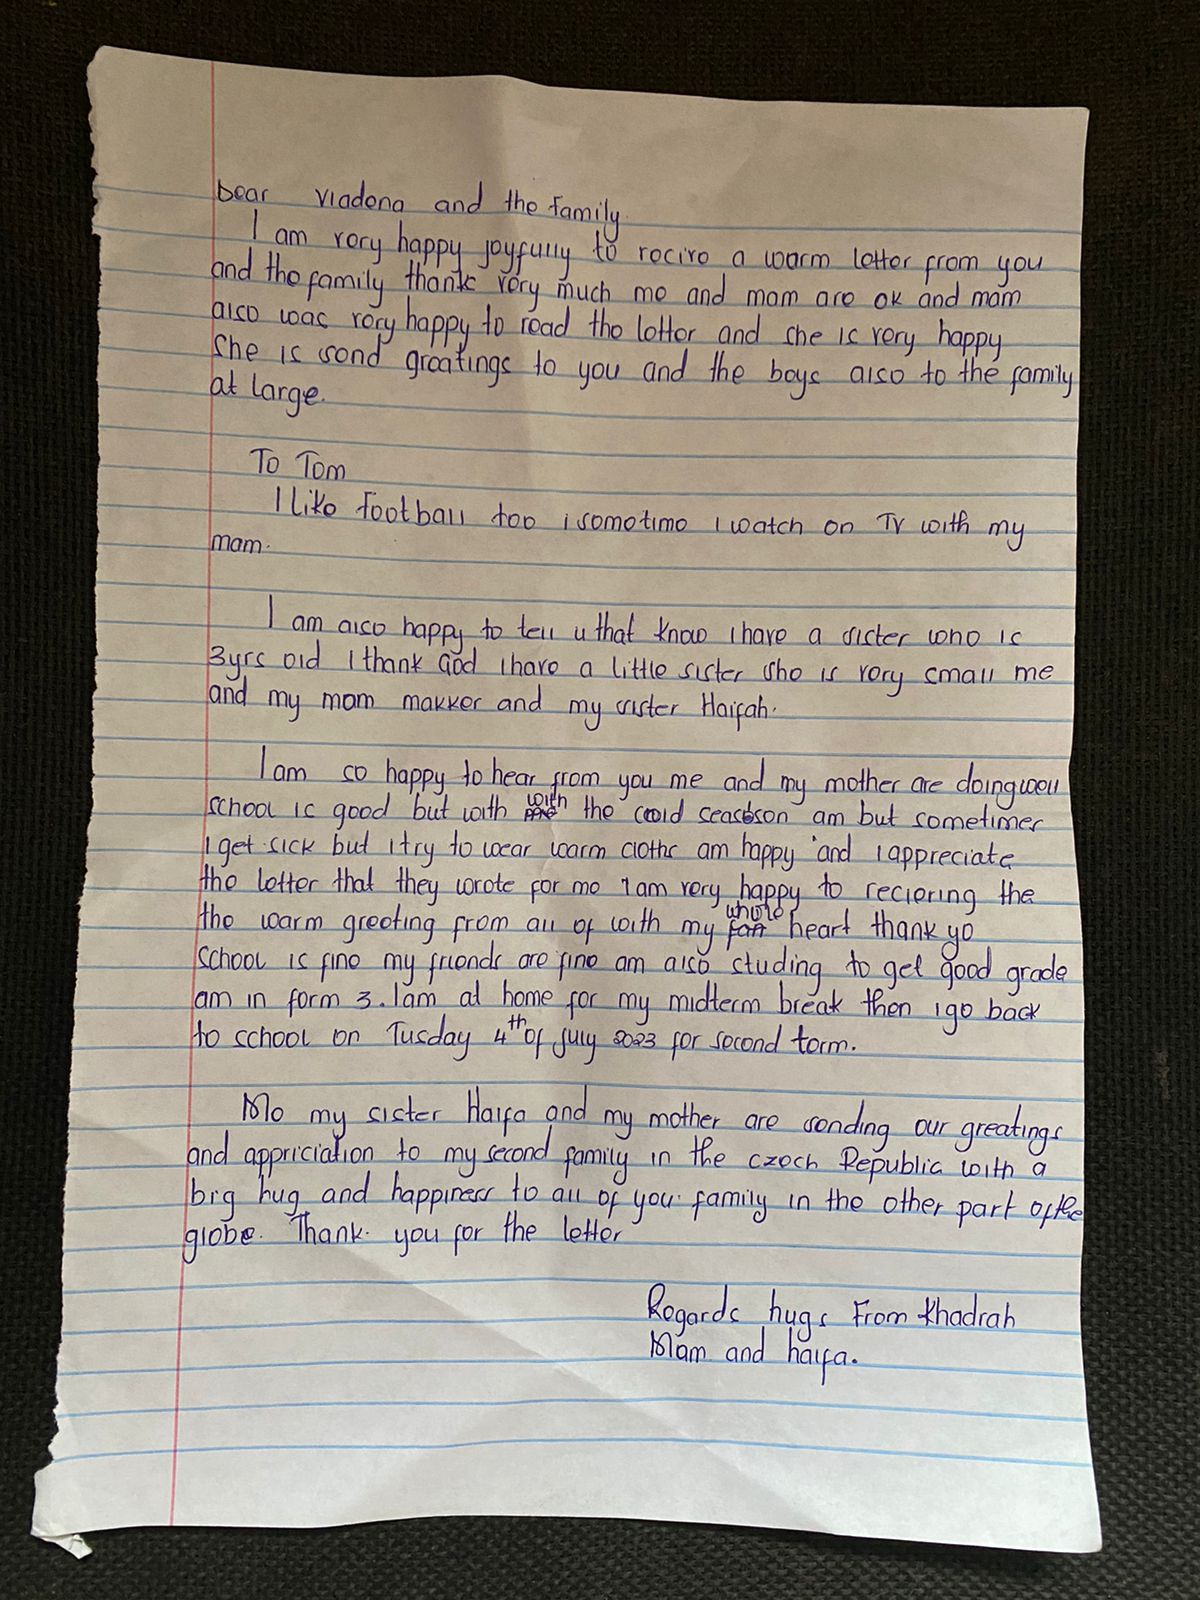 Dear Viadena and the family.
I am very happy joyfully to recive a warm letter from you
and the family thank very much me and mam are ok and mam
also was very happy to read the letter and she is very happy
She is send greatings to you and the boys also to the family
at large.
To Tom
I like football too i sometime I watch on TV with my
mam.
I am also happy to tell u that know I have a sister who is
3yrs old I thank God I have a little sister She is very small me
and my mam makker and my sister Haifah.
I am so happy to hear from you me and my mother are doing well
school is good but with with the coold seasoson am but sometimes
I get sick but I try to wear warm cloths am happy and I appreciate
the letter that they wrote for me I am very happy to reciering the
the warm greeting from all of with my whole heart thank yo
School is fine my friends are fine am also studing to get good grade
am in form 3. I am at home for my midterm break then I go back
to school on Tusday 4th of July 2023 for second term.
Me my sister Haifa and my mother are sending our greatings
and appriciation to my second family in the czech Republic with a
big hug and happiness to all of you family in the other part of the
globe. Thank you for the letter
Regards hugs From Khadrah
Mam and haifa.